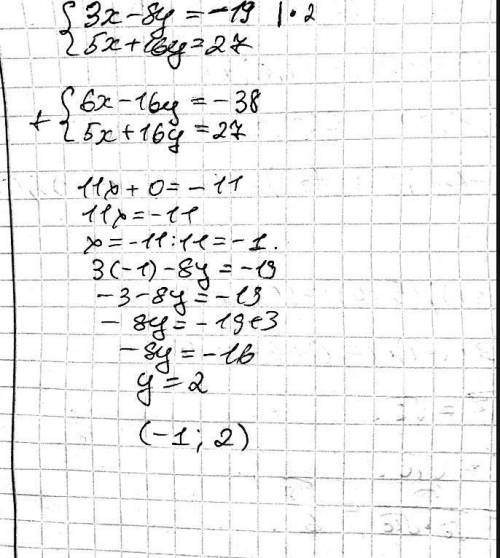 {3x-8y=-19 |·2
{5x+16y=27
+ {6x-16y=-38
{5x+16y=27
11x+0=-11
11x=-11
x=-11:11=-1.
3(-1)-8y=-19
-3-8y=-19
-8y=-19+3
-8y=-16
y=2
(-1; 2)